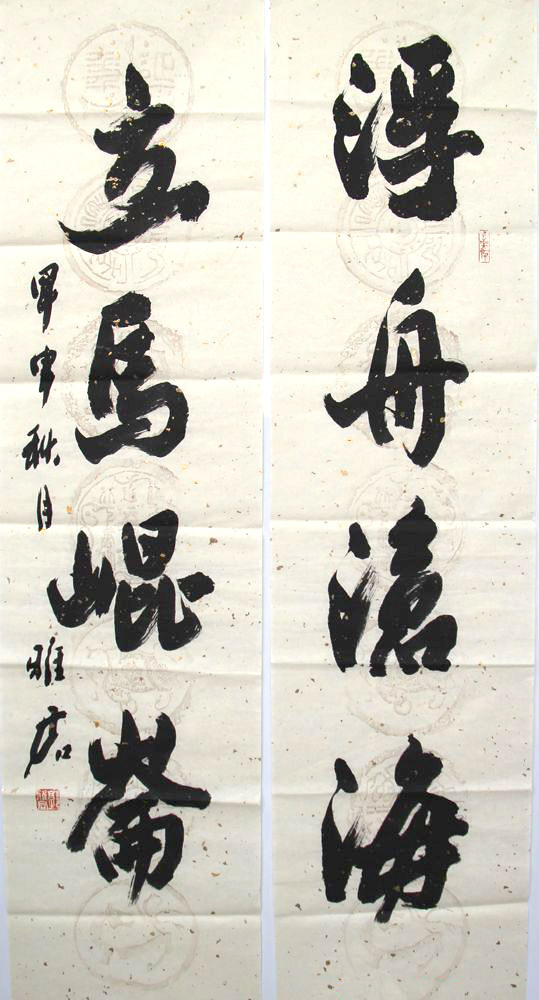 浮舟滄海
立馬崐崙
甲申秋月 雅君